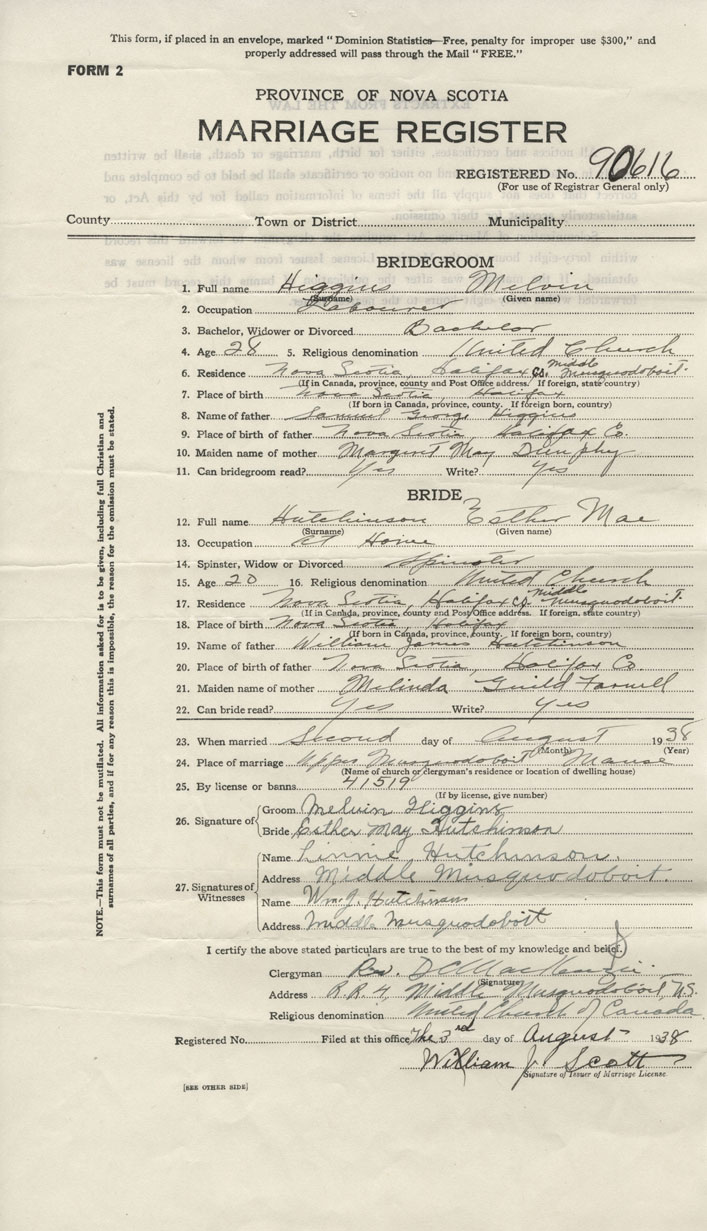 This form, if placed in an envelope, marked "Dominion Statistics—Free, penalty for improper use $300," and
properly addressed will pass through the Mail "FREE."
FORM 2
PROVINCE OF NOVA SCOTIA
MARRIAGE REGISTER
REGISTERED No. 90616
(For use of Registrar General only)
County Town or District Municipality
BRIDEGROOM
1. Full name Higgins Melvin
(Surname) (Given name)
2. Occupation Labourer
3. Bachelor, Widower or Divorced Bachelor
4. Age 28 5. Religious denomination United Church
6. Residence Nova Scotia, Halifax Co. Middle Musquodoboit.
(If in Canada, province, county and Post Office address. If foreign, state country)
7. Place of birth Nova Scotia, Halifax
(If born in Canada, province, county. If foreign born, country)
8. Name of father Samuel George Higgins
9. Place of birth of father Nova Scotia, Halifax Co.
10. Maiden name of mother Margaret May Dunphy
11. Can bridegroom read? Yes Write? Yes
BRIDE
12. Full name Hutchinson Esther Mae
(Surname) (Given name)
13. Occupation At Home
14. Spinster, Widow or Divorced Spinster
15. Age 20 16. Religious denomination United Church
17. Residence Nova Scotia, Halifax Co. Middle Musquodoboit.
(If in Canada, province, county and Post Office address. If foreign, state country)
18. Place of birth Nova Scotia, Halifax
(If born in Canada, province, county. If foreign born, country)
19. Name of father William James Hutchinson
20. Place of birth of father Nova Scotia, Halifax Co
21. Maiden name of mother Melinda Guild Farnell
22. Can bride read? Yes Write? Yes
23. When married Second day of August 1938
(Month) (Year)
24. Place of marriage Upper Musquodoboit Manse
(Name of church or clergyman's residence or location of dwelling house)
25. By license or banns 41519
(If by license, give number)
26. Signature of Groom Melvin Higgins
Bride Esther May Hutchinson
27. Signatures of Witnesses
Name Linnie Hutchinson.
Address Middle Musquodoboit.
Name Wm. J. Hutchinson
Address Middle Musquodoboit
I certify the above stated particulars are true to the best of my knowledge and belief.
Clergyman Rev. D C MacKenzie
(Signature)
Address R.R. 4, Middle Musquodoboit, N.S.
Religious denomination United Church of Canada
Registered No. Filed at this office the 3rd day of August 1938
William J. Scott
Signature of Issuer of Marriage License
[SEE OTHER SIDE]
NOTE.—This form must not be mutilated. All information asked for is to be given, including full Christian and
surnames of all parties, and if for any reason this is impossible, the reason for the omission must be stated.